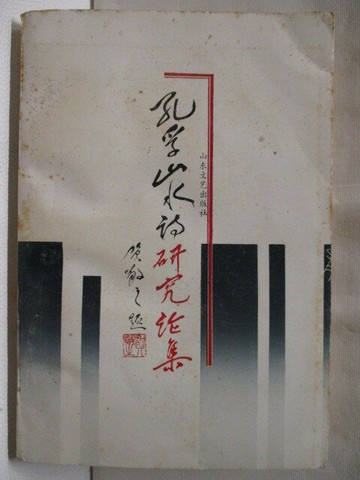 孔孚山水诗研究论集
山东文艺出版社
贺敬之题